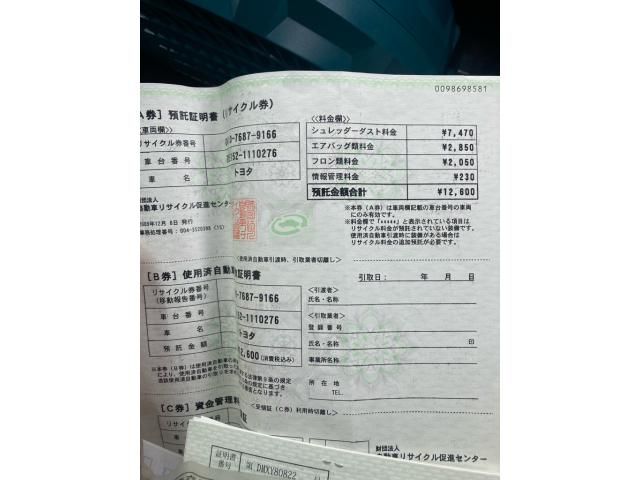 0098698581
A券］預託証明書（リサイクル券）
車両欄>
リサイクル券番号 -7687-9166
車台番号 52-1110276
車名 トヨタ
<料金欄>
シュレッダーダスト料金 ¥7,470
エアバッグ類料金 ¥2,850
フロン類料金 ¥2,050
情報管理料金 ¥230
預託金額合計 ¥12,600
団法人
自動車リサイクル促進センター
12月 8日 発行
※本券（A券）は車両欄記載の車台番号の車両
にのみ有効です。
※料金欄で「*****」と表示されている項目は
リサイクル料金が預託されていない装備です。
使用済自動車引渡時に装備がある場合は
リサイクル料金の追加預託が必要です。
<使用済自動車引渡時、引取業者切離し>
［B券］使用済自動 証明書
引取日： 年 月 日
リサイクル券番号
（移動報告番号） -7687-9166
車台番号 52-1110276
車名 トヨタ
預託金額 2,600（消費税込み）
<引渡者>
氏名・名称
<引取業者>
登録番号
氏名・名称 印
事業所名称
所在地
TEL.
※本券（B券）は使用済自動車の
［C券］資金管理料
<受領証（C券）利用時切離し>
リサイクル券番号
車
財団法人
自動車リサイクル促進センター
証明書
番号 第 DMXY80822 号